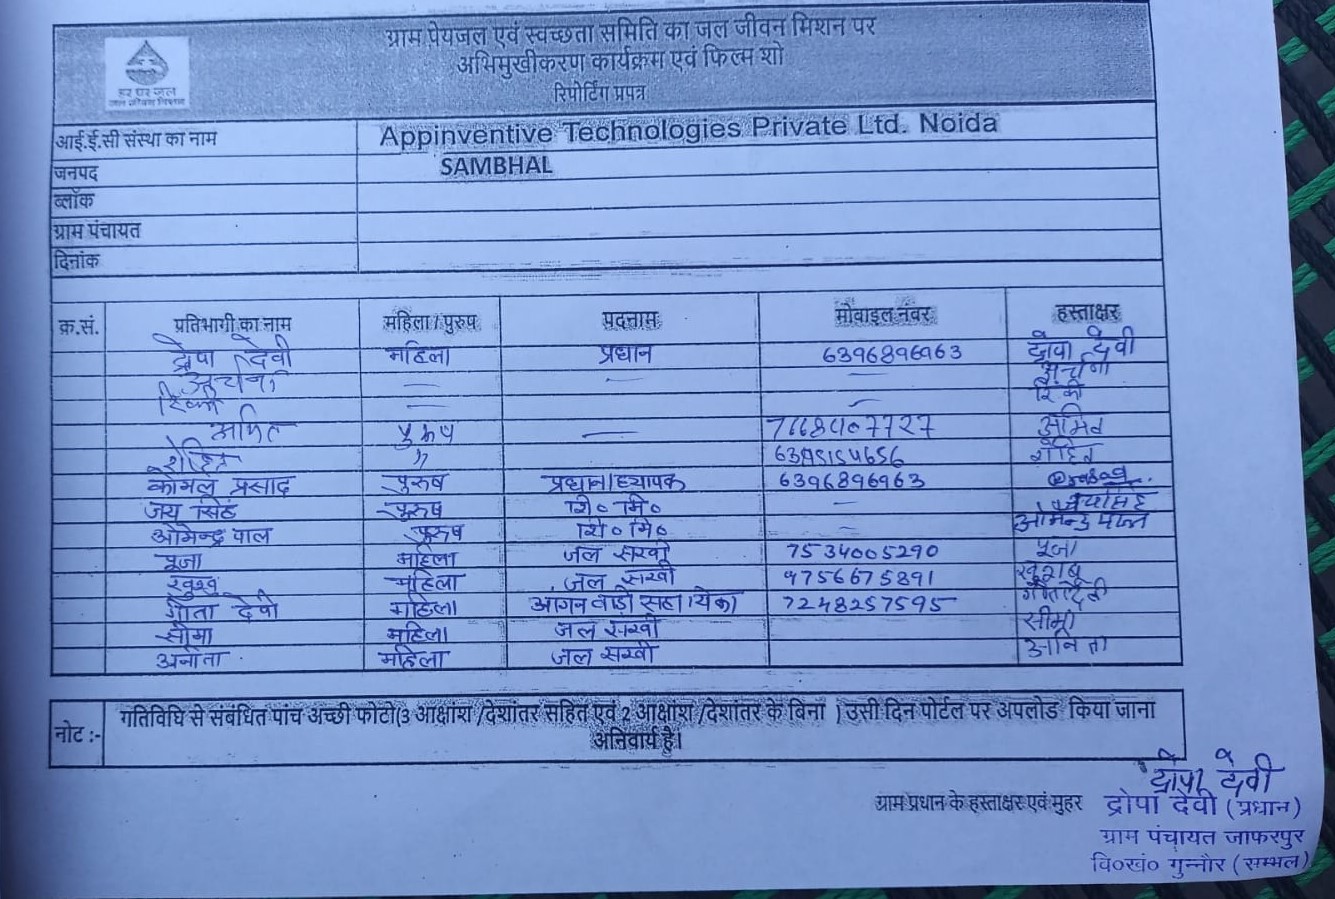 ग्राम पेयजल एवं स्वच्छता समिति का जल जीवन मिशन पर
अभिमुखीकरण कार्यक्रम एवं फिल्म शो
रिपोर्टिंग प्रपत्र
हर घर जल
जल जीवन मिशन
आई.ई.सी संस्था का नाम Appinventive Technologies Private Ltd. Noida
जनपद SAMBHAL
ब्लॉक
ग्राम पंचायत
दिनांक
क्र.सं. प्रतिभागी का नाम महिला / पुरुष पदनाम मोबाइल नंबर हस्ताक्षर
द्रोपा देवी महिला प्रधान 6396896963 द्रोपा देवी
अर्चना — — — अर्चना
रिंकी — — रिंकी
अमित पुरुष — अमित
रोहित " रोहित
कोमल प्रसाद पुरुष प्रधानाध्यापक 6396896963
जय सिंह पुरुष शि० मि० जयसिंह
ओमेन्द्र पाल पुरुष शि० मि० — ओमेन्द्र पाल
पूजा महिला जल सखी 7534005290 पूजा
खुशबू महिला जल सखी 9756675891 खुशबू
गीता देवी महिला आंगनवाड़ी सहायिका 7248257595 गीता देवी
सीमा महिला जल सखी सीमा
अनीता महिला जल सखी अनिता
नोट :- गतिविधि से संबंधित पांच अच्छी फोटो(3 आक्षांश /देशांतर सहित एवं 2 आक्षांश /देशांतर के बिना ) उसी दिन पोर्टल पर अपलोड किया जाना
अनिवार्य है।
द्रोपा देवी
ग्राम प्रधान के हस्ताक्षर एवं मुहर द्रोपा देवी (प्रधान)
ग्राम पंचायत जाफरपुर
वि०खं० गुन्नौर (सम्भल)